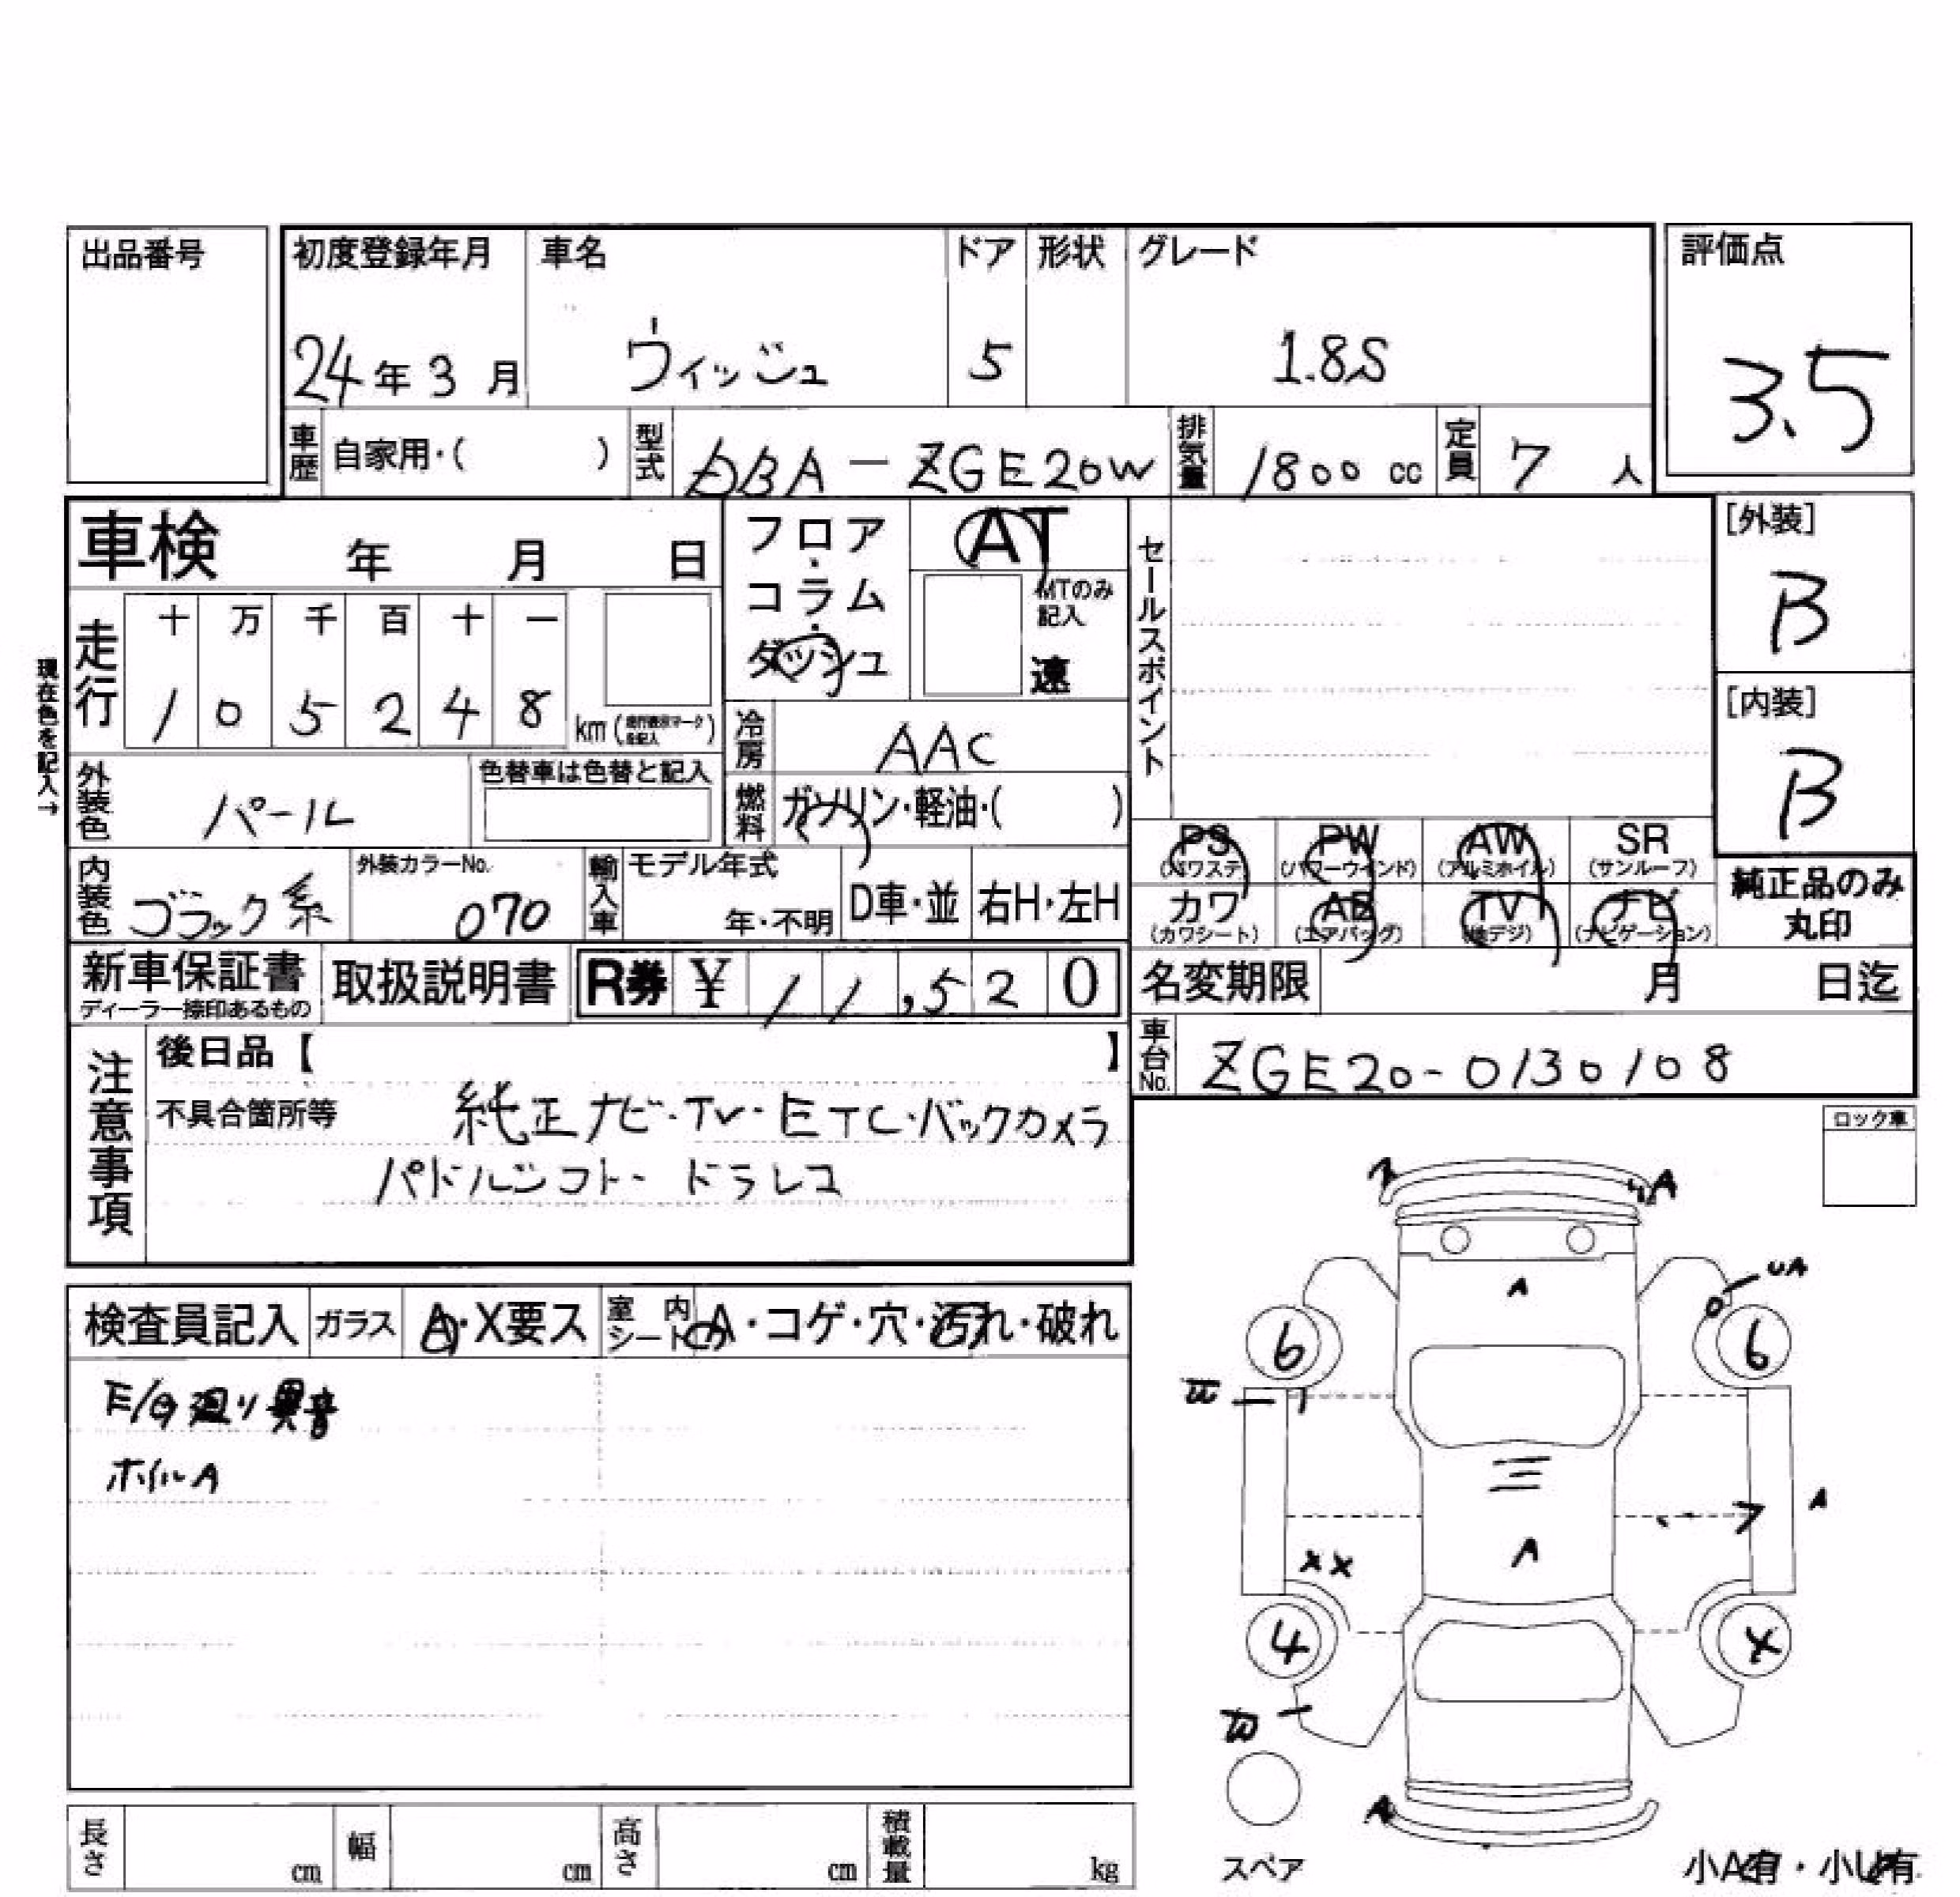 出品番号
初度登録年月 車名 ドア 形状 グレード 評価点
24年3月 ウィッシュ 5 1.8S 3.5
車歴 自家用・( ) 型式 DBA-ZGE20W 排気量 1800 cc 定員 7 人
車検 年 月 日
フロア・コラム・ダッシュ
AT
MTのみ記入
速
セールスポイント
[外装]
B
[内装]
B
現在色を記入→
走行 十 万 千 百 十 一
1 0 5 2 4 8 km
冷房 AAC
外装色 パール 色替車は色替と記入
燃料 ガソリン・軽油・( )
内装色 ブラック系 外装カラーNo. 070
輸入車 モデル年式 年・不明 D車・並 右H・左H
PS (パワステ) PW (パワーウインド) AW (アルミホイル) SR (サンルーフ)
カワ (カワシート) AB (エアバッグ) TV (地デジ) ナビ (ナビゲーション)
純正品のみ丸印
新車保証書 ディーラー捺印あるもの 取扱説明書 R券 ¥ 11,520
名変期限 月 日迄
車台No. ZGE20-0130108
注意事項
後日品【 】
不具合箇所等 純正ナビ・TV・ETC・バックカメラ
パドルシフト・ドラレコ
ロック車
検査員記入 ガラス A・X要ス 室内シート A・コゲ・穴・汚れ・破れ
E/G廻り異音
ホイルA
A
A
UA
6 6
A
XX
A
4
A
スペア
小A有・小U有
長さ cm 幅 cm 高さ cm 積載量 kg